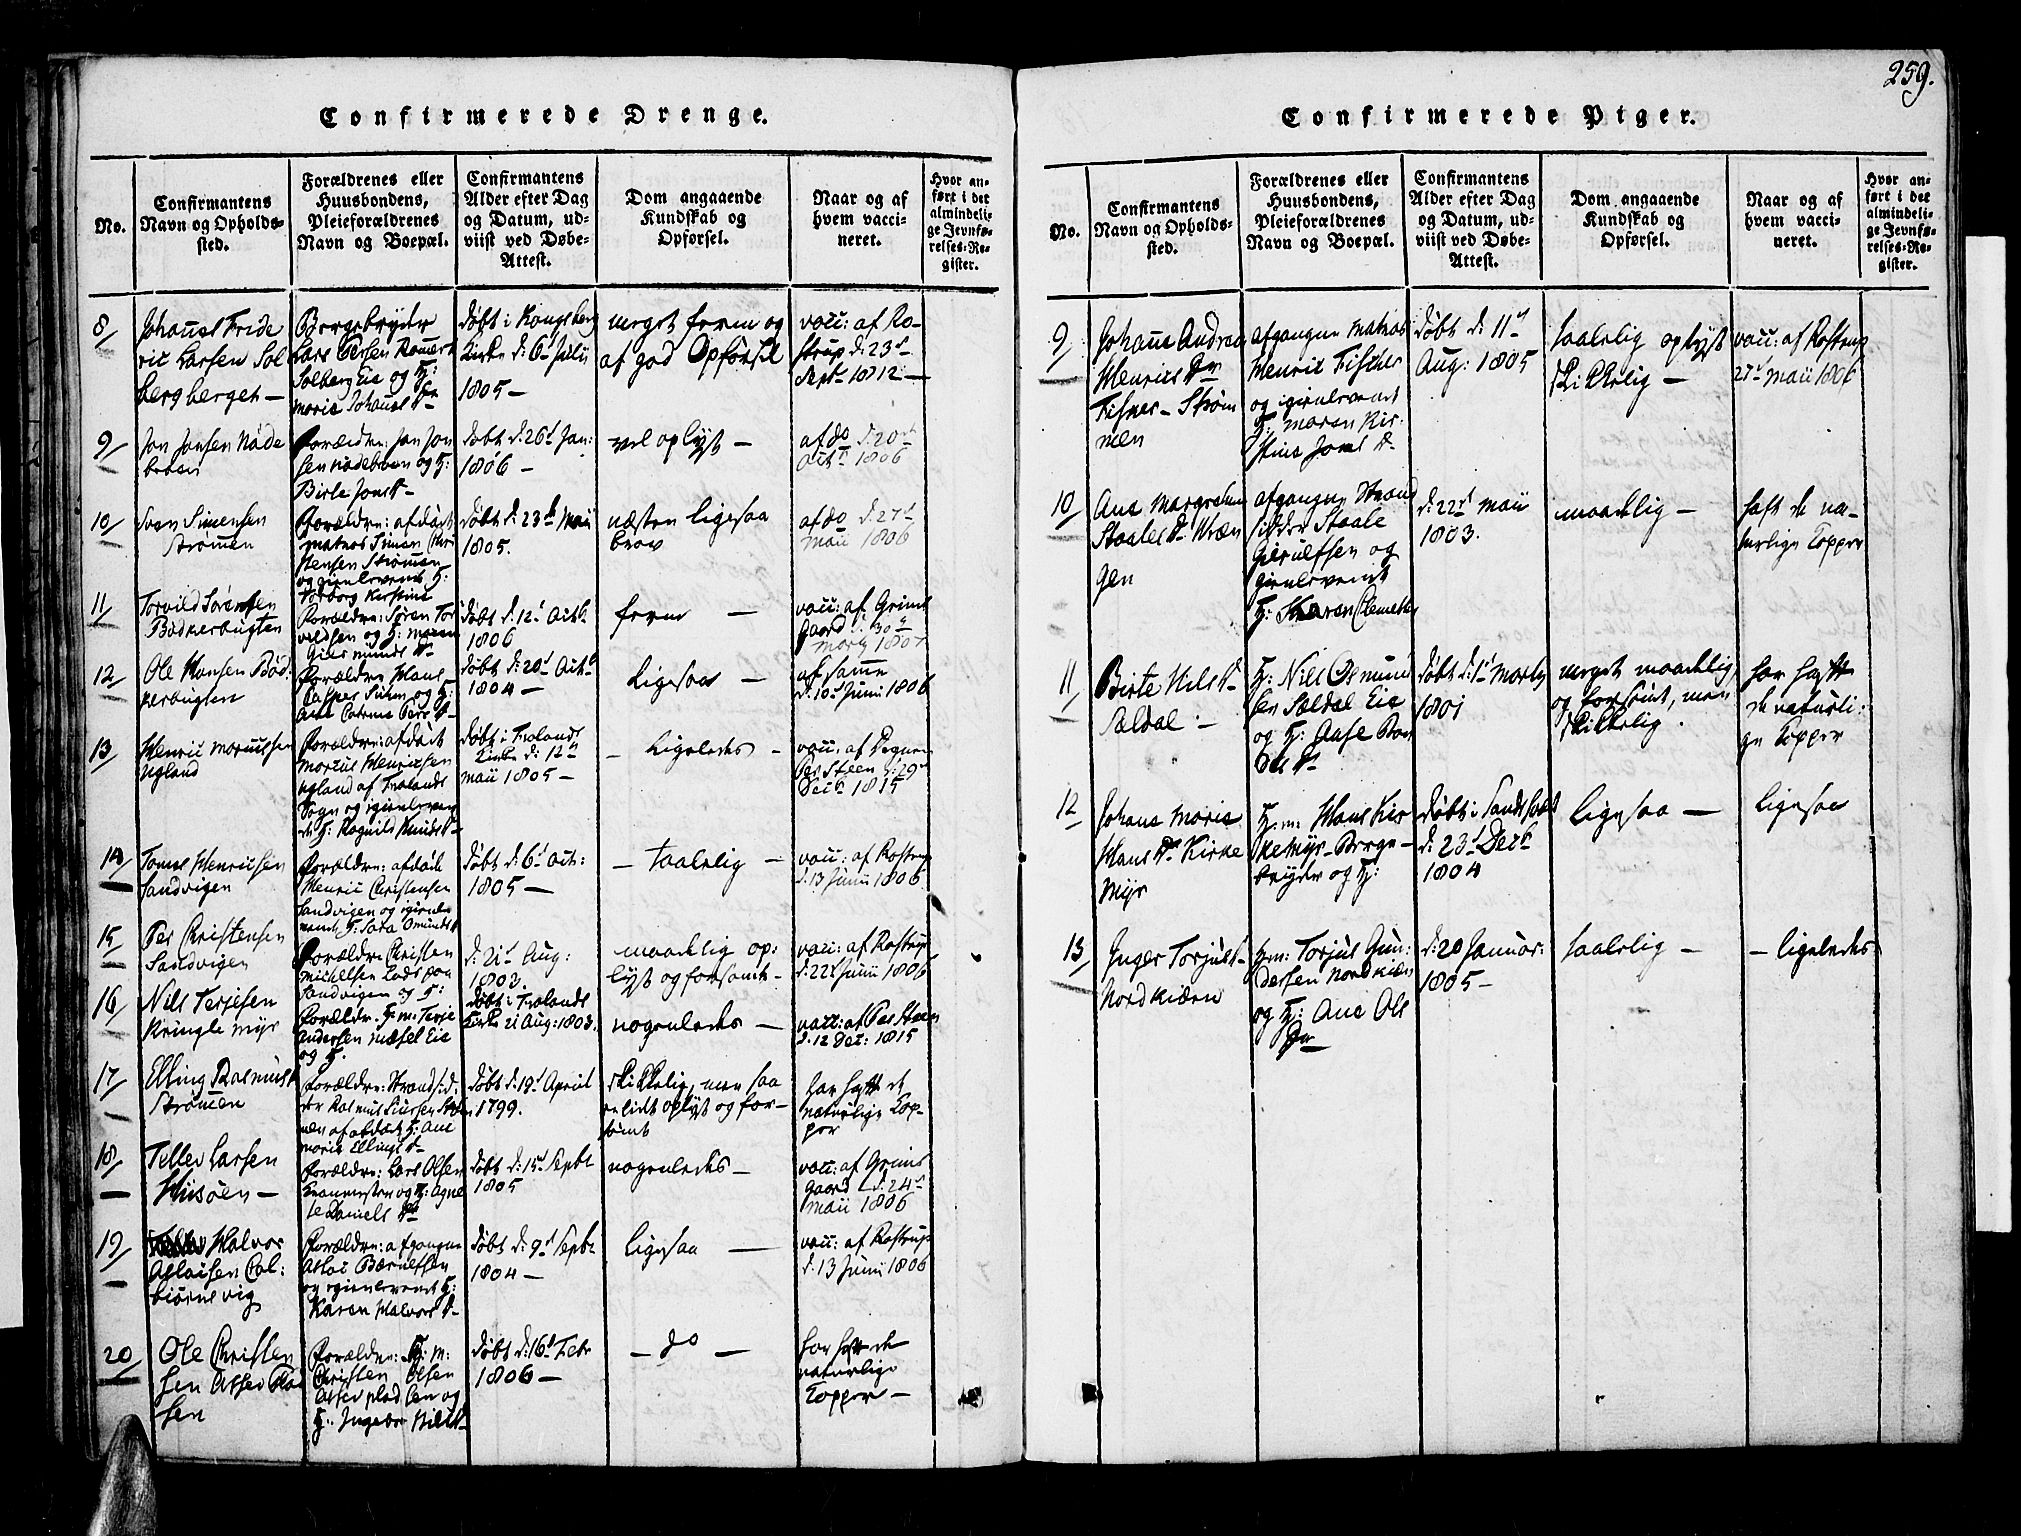 259.
Confirmerede Drenge.
No.
Confirmantens
Navn og Opholds-
sted.
Forældrenes eller
Huusbondens,
Pleieforældrenes
Navn og Boepæl.
Confirmantens
Alder efter Dag
og Datum, ud-
viist ved Døbe-
Attest.
Dom angaaende
Kundskab og
Opførsel.
Naar og af
hvem vacci-
neret.
Hvor an-
ført i det
almindeli-
ge Jevnfø-
relses-Re-
gister.
8/
Johannes Fride
ric Larsen Sol
bergberget —
Bergebryder
Lars Persen
Solberg Eie og H:
Marie Johannes D-
Døbt i Kongsberg
Kirke d: 6t Julii
1805 —
meget frem og
af god Opførsel
vacc: af Ro-
strup d: 23d
Septr 1812 —
9/
Jon Jonsen Nøde
broen
Forældre: Jon Jon
sen Nødebroen og H:
Birte Jons D-
Døbt d: 26d Jan:
1806 —
vel oplyst —
af do d: 20d
Octr 1806
10/
Sven Simensen
Strømen
Forældre: afdøde
Matros Simen Chri
stensen Strømen
og gienlevende H:
Torborg Kirstine
Døbt d: 23d Maii
1805.
næsten ligesaa
brav
af do d: 27d
Maii 1806
11/
Torvild Sørensen
Bødkerbugten
Forældre: Søren Tor
vildsen og H: Maren
Giermunds D-
Døbt d: 12d Octb
1806
frem —
vacc: af Grims
gaard d: 30d
Marty 1807
12/
Ole Hansen Bød
kerbugten
Forældre Hans
Casper Simen og H:
Ane Catrine Pers D-
Døbt d: 20d Octb
1804 —
Ligesaa —
af samme
d: 10d Junii 1806
13/
Henric Morcussen
Ugland
Forældre: afdøde
Morcus Henricsen
Ugland af Frolands
Sogn og igienleven
de H: Ragnild Knuds D-
Døbt i Frolands
Kirke d: 12d
Maii 1805 —
— Ligeledes —
vacc: af Degnen
Per Steen d: 29d
Decb 1815
14/
Tomes Henricsen
Sandvigen
Forældre: afdøde
Henric Christensen
Sandvigen og igienle
vende H: Sara Omunds D
Døbt d: 6d Oct:
1805 —
— taalelig —
vacc: af Rostrup
d: 13 Junii 1806
15/
Per Christensen
Sandvigen
Forældre Christen
Michelsen Lods paa
Sandvigen og H:
d: 21d Aug:
1803.
maadelig op:
lyst og forsømt —
vacc: af Rostrup
d: 22d Junii 1806
16/
Nils Terjesen
Kringlemyr
Forældre. H: m: Terje
Andersen Næsel Eie
og H.
Døbt i Frolands
Kirke 21 Aug: 1803.
nogenledes —
vacc: af Per Steen
d. 12 Dec: 1815
17/
Elling Rasmus
Strømen
Forældre: Strandsid
der Rasmus Siursen Strøm
nen af afdøde H: Ane
Marie Ellings D-
Døbt d: 19d April
1799.
Skikkelig, men saa
re lidt oplyst og for-
sømt
har haft de
naturlige Kop-
per
18/
Tellev Larsen
Hiisøen —
Forældre: Lars Olsen
og H: Agne
te Daniels D-
Døbt d: 15d Septr
1805
nogenledes —
vacc: af Grims
gaard d. 24d
Maii 1806
19/
Halvor
Aslacsen Col:
biørnsvig
Forældre: afgangne
Aslac Bærulfsen
og igienlevende H:
Karen Halvors D-
Døbt d: 9d Septr
1804 —
Ligesaa —
vacc: af Rostrup
d. 13 Junii 1806
20/
Ole Christen
sen Assev Plad
sen
Forældre: H: m:
Christen Olsen
Assev pladsen og
H: Ingebor Nils D-
Døbt d: 16d Febr
1806 —
— do —
har haft de
naturlige
Kopper —
Confirmerede Piger.
No.
Confirmantens
Navn og Opholds-
sted.
Forældrenes eller
Huusbondens,
Pleieforældrenes
Navn og Boepæl.
Confirmantens
Alder efter Dag
og Datum, ud-
viist ved Døbe-
Attest.
Dom angaaende
Kundskab og
Opførsel.
Naar og af
hvem vacci-
neret.
Hvor an-
ført i det
almindeli-
ge Jevnfø-
relses-Re-
gister.
9/
Johanne Andrea
Henrics Dr
Fisker — Strøm
nen
afgangne Matros
Henric Fisker
og igienlevende
H: Maren Kir-
stine Jons D-
Døbt d: 11d
Aug: 1805
taalelig oplyst
Skikkelig —
vacc: af Rostrup
27d Maii 1806
10/
Ane Margrethe
Staales D-
gen
afgangne Strand
sidder Staale
Gierulfsen og
gienlevende
H: Karen Clemets
d: 22d Maii
1803.
maadelig —
haft de na-
turlige Kopper
11/
Birte Nils D-
Sældal —
H: Nils Osmund
sen Sældal Eie
og H: Aase
Ols D-
Døbt d: 1d Marty
1801
meget maadelig
og forsømt, men
Skikkelig.
har haft
de naturli:
ge Kopper
12/
Johane Marie
Hans Dr Kirke
Myr
H: m: Hans Kir
kemyr — Berge —
bryder og H:
Døbt i
d: 23d Decb
1804
ligesaa —
ligesaa
13/
Inger Torjuls D-
Nordkiæren
H: m: Torjul Gun:
dersen Nordkiæren
og H: Ane Ols
Dr
d: 20 Januar:
1805 —
taalelig —
— ligeledes